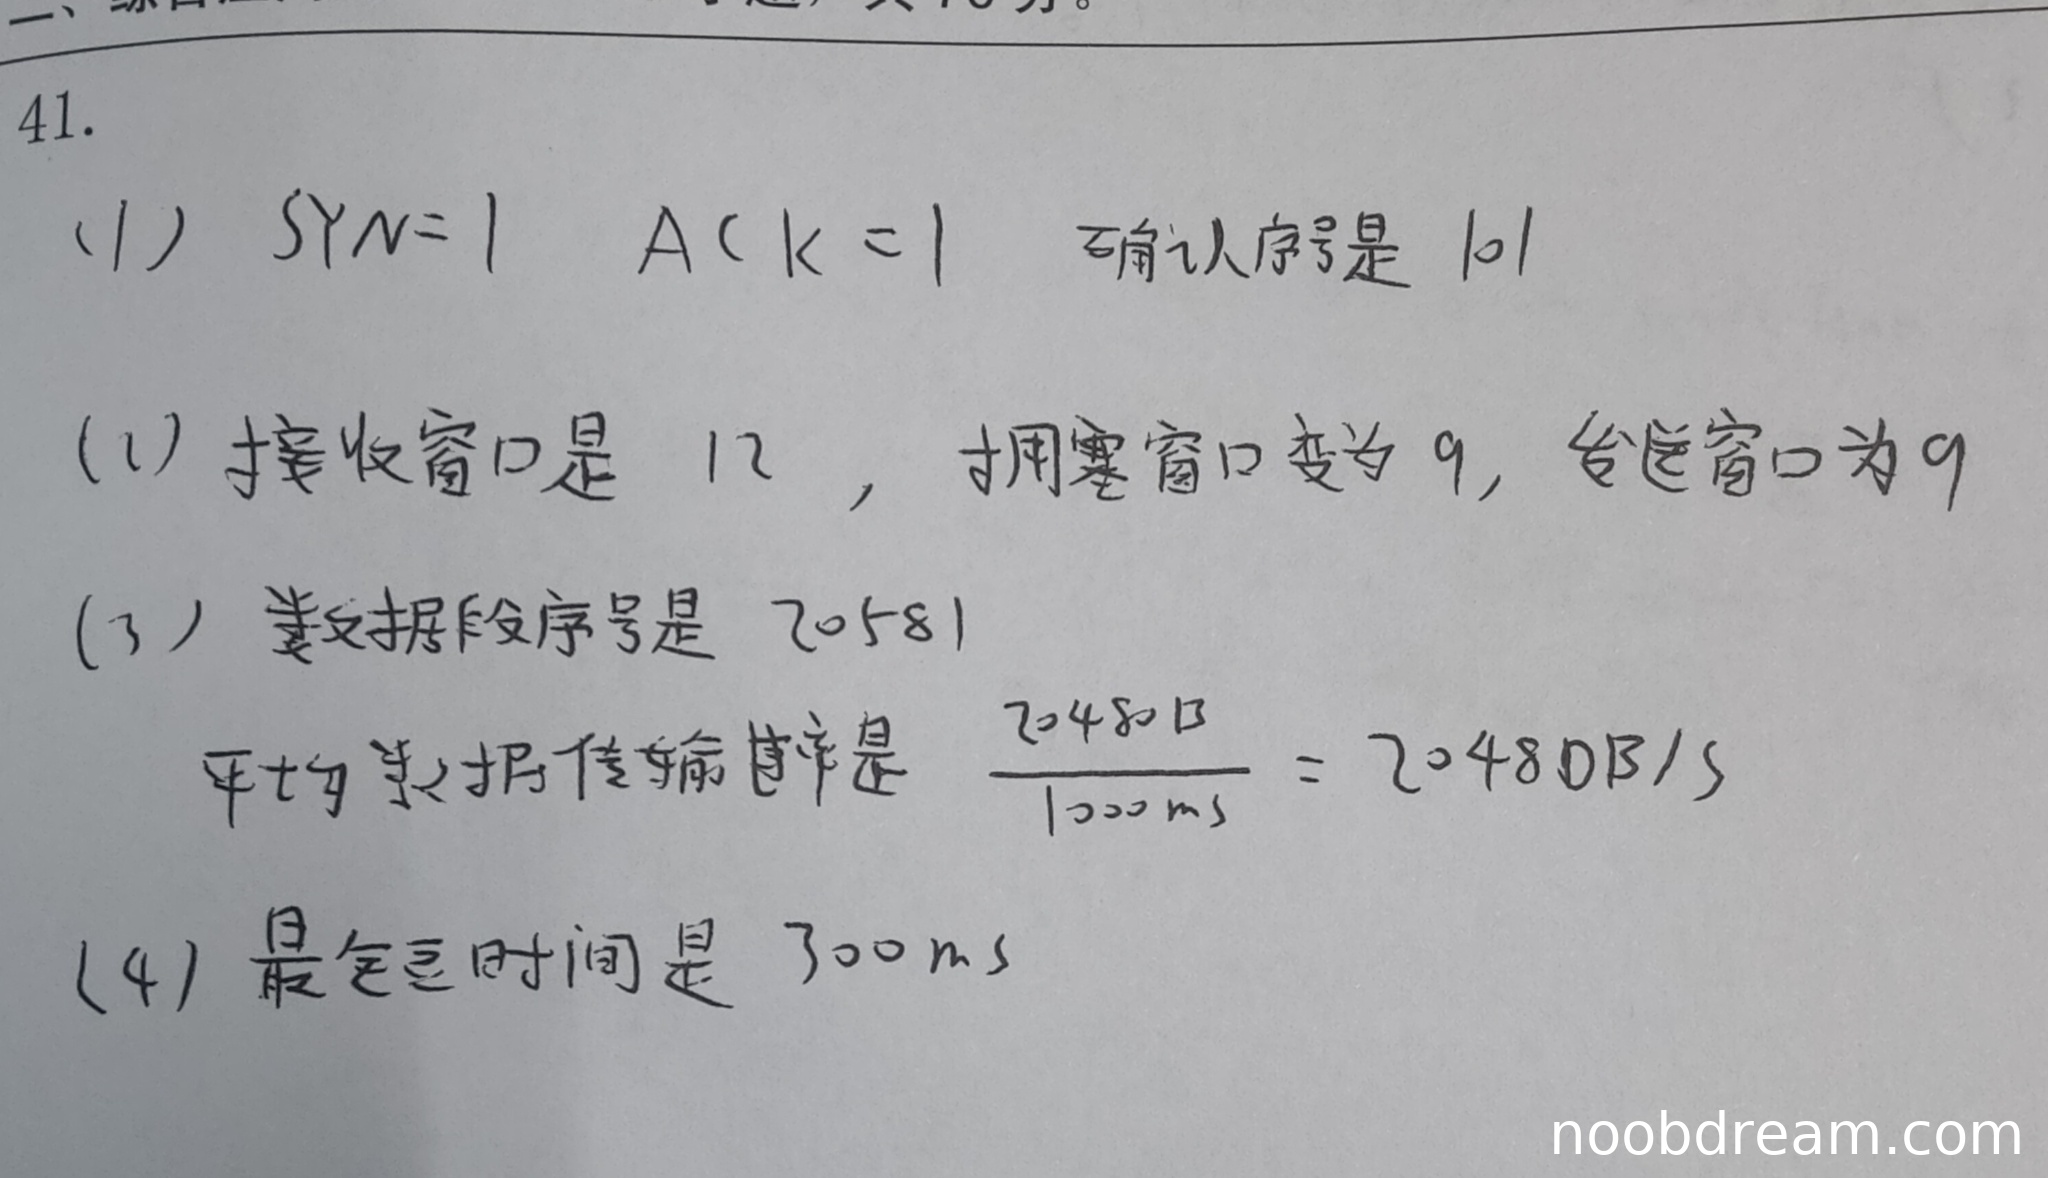 41.
(1) SYN=1 ACK=1 确认序号是 101
(2) 接收窗口是 12 , 拥塞窗口变为 9, 发送窗口为 9
(3) 数据段序号是 20581
平均数据传输速率是 20480B / 1000ms = 20480B/s
(4) 最短时间是 300ms
noobdream.com